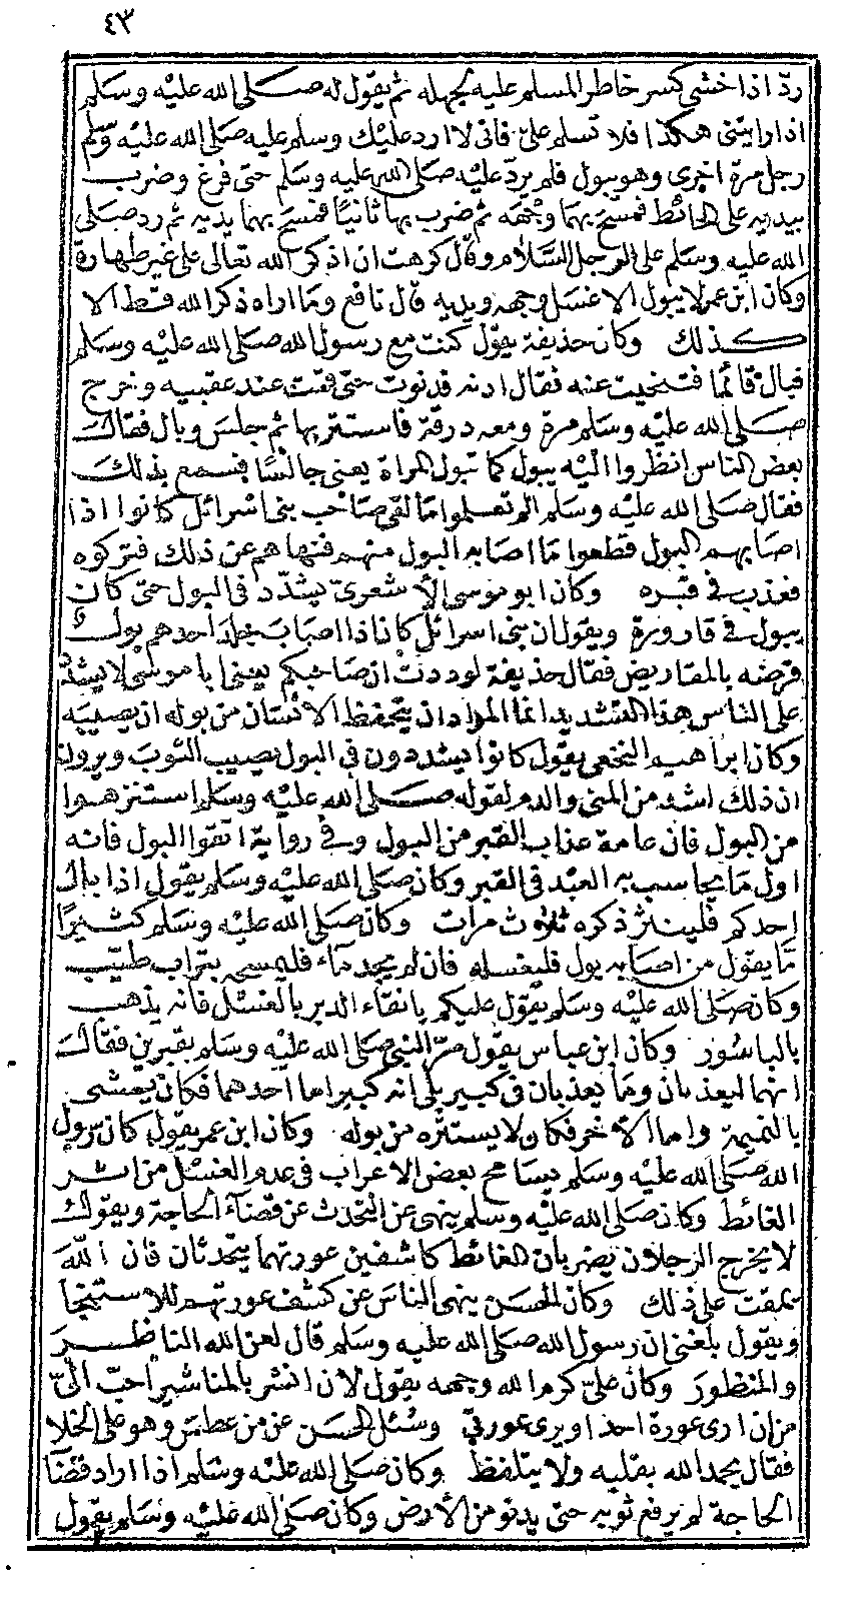 ٤٣
ردّ اذا خشى كسر خاطر المسلم عليه لجهله ثم يقول له صلى الله عليه وسلم
اذا رايتنى هكذا فلا تسلم علىّ فانى لا ارد عليك وسلم عليه صلى الله عليه وسلم
رجل مرة اخرى وهو يبول فلم يردّ عليه صلى الله عليه وسلم حتى فرغ وضرب
بيديه على الحائط فمسح بهما وجهه ثم ضرب بها ثانيا فمسح بهما يديه ثم رد صلى
الله عليه وسلم على الرجل السلام وقال كرهت ان اذكر الله تعالى على غير طهارة
وكان ابن عمر لا يبول الا غسل وجهه ويديه قال نافع وما اراه ذكر الله قط الا
كذلك وكان حذيفة يقول كنت مع رسول الله صلى الله عليه وسلم
فبال قائما فتنحيت عنه فقال ادنه فدنوت حتى قمت عند عقبيه وخرج
صلى الله عليه وسلم مرة ومعه درقة فاستتر بها ثم جلس وبال فقال
بعض الناس انظروا اليه يبول كما تبول المراة يعنى جالسا فسمع بذلك
فقال صلى الله عليه وسلم الم تعلموا ما لقى صاحب بنى اسرائل كانوا اذا
اصابهم البول قطعوا ما اصابه البول منهم فنهاهم عن ذلك فتركوه
فعذب فى قبره وكان ابو موسى الأشعرى يشدّد فى البول حتى كان
يبول فى قارورة ويقول ان بنى اسرائل كان اذا اصاب جلد احدهم بول
قرضه بالمقاريض فقال حذيفة لوددت ان صاحبكم يعنى ابا موسى لا يشدّد
على الناس هذا التشديد انما المراد ان يتحفظ الانسان من بوله ان يصيبه
وكان ابراهيم النخعى يقول كانوا يشددون فى البول يصيب الثوب ويرون
ان ذلك اشد من المنى والدم لقوله صلى الله عليه وسلم استنزهوا
من البول فان عامة عذاب القبر من البول وفى رواية اتقوا البول فانه
اول ما يحاسب به العبد فى القبر وكان صلى الله عليه وسلم يقول اذا بال
احدكم فلينثر ذكره ثلاث مرات وكان صلى الله عليه وسلم كثيرا
ما يقول من اصابه بول فليغسله فان لم يجد ماء فليمسحه بتراب طيب
وكان صلى الله عليه وسلم يقول عليكم بانقاء الدبر بالغسل فانه يذهب
بالباسور وكان ابن عباس يقول مرّ النبى صلى الله عليه وسلم بقبرين فقال
انهما ليعذبان وما يعذبان فى كبير بلى انه كبير اما احدهما فكان يمشى
بالنميمة واما الآخر فكان لا يستنزه من بوله وكان ابن عمر يقول كان رسول
الله صلى الله عليه وسلم يسامح بعض الاعراب فى عدم الغسل من اثر
الغائط وكان صلى الله عليه وسلم ينهى عن التحدث عن قضاء الحاجة ويقول
لا يخرج الرجلان يضربان الغائط كاشفين عورتهما يتحدثان فان الله
يمقت على ذلك وكان الحسن ينهى الناس عن كشف عورتهم للاستنجا
ويقول بلغنى ان رسول الله صلى الله عليه وسلم قال لعن الله الناظر
والمنظور وكان علىّ كرم الله وجهه يقول لان انشر بالمناشير احب الىّ
من ان ارى عورة احد او يرى عورتى وسئل الحسن عن من عطس وهو على الخلا
فقال يحمد الله بقلبه ولا يتلفظ وكان صلى الله عليه وسلم اذا اراد قضا
الحاجة لم يرفع ثوبه حتى يدنو من الأرض وكان صلى الله عليه وسلم يقول